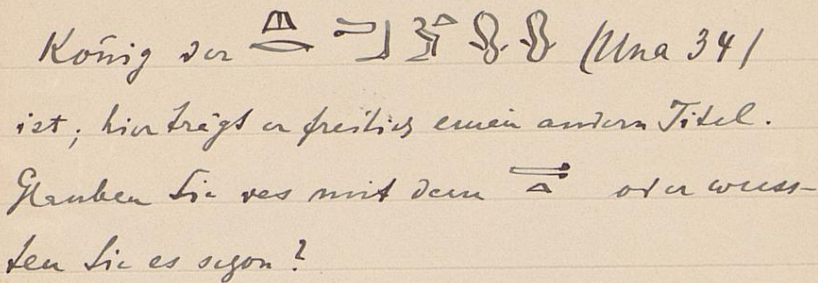 König der (Una 34)
ist; hier trägt er freilich einen andern Titel.
Glauben Sie das mit dem oder wuss-
ten Sie es schon?